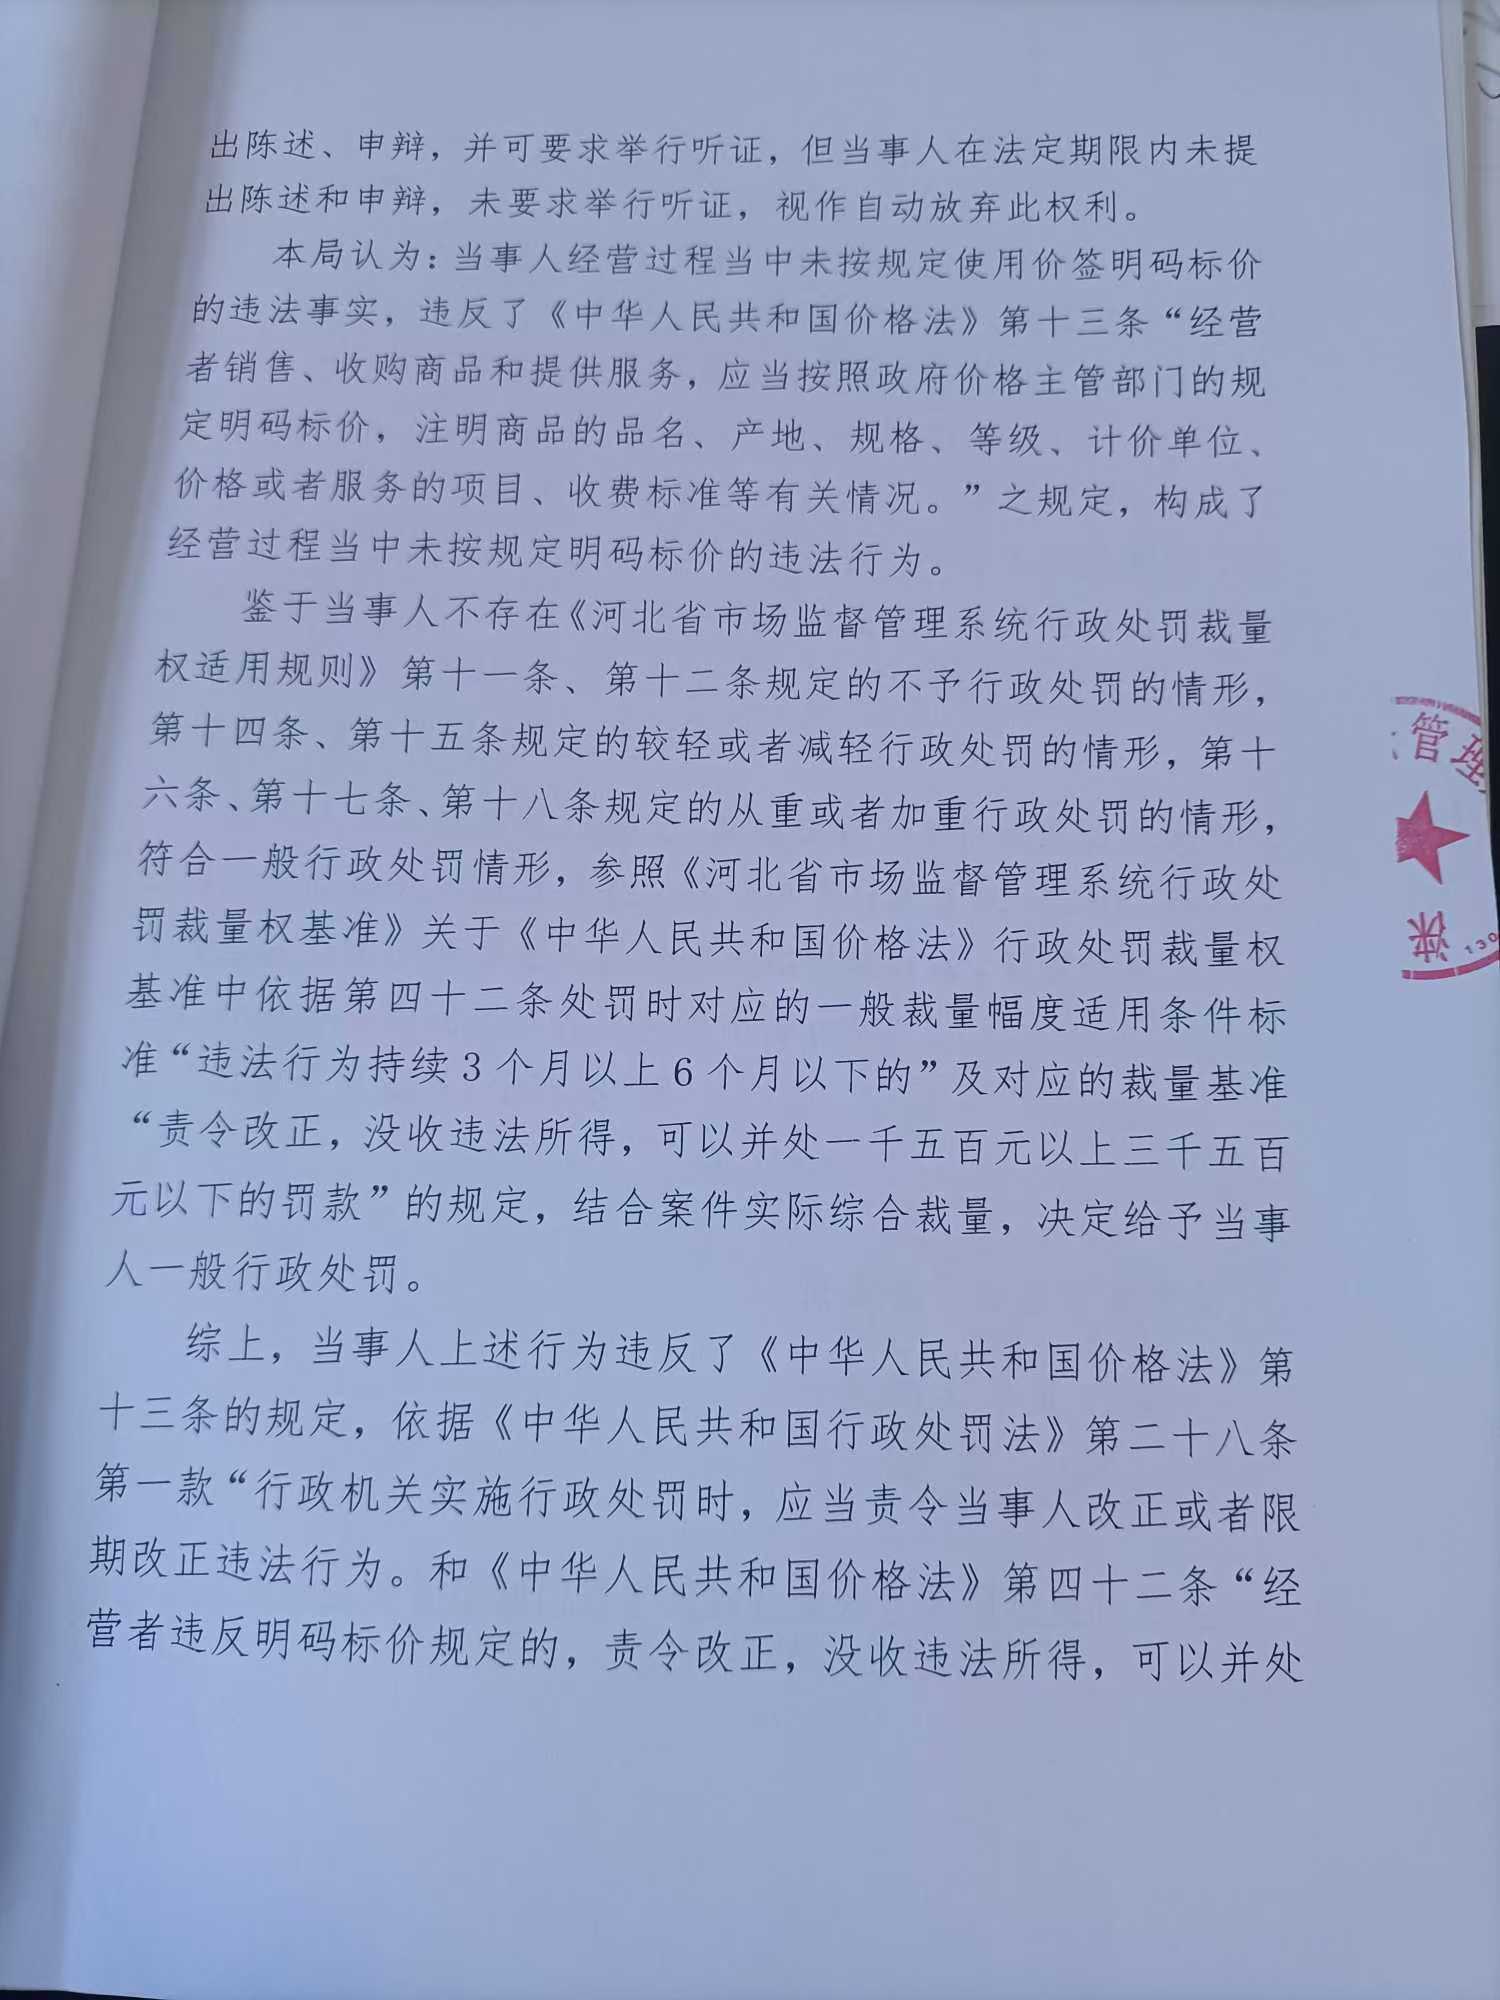 出陈述、申辩，并可要求举行听证，但当事人在法定期限内未提
出陈述和申辩，未要求举行听证，视作自动放弃此权利。
本局认为：当事人经营过程当中未按规定使用价签明码标价
的违法事实，违反了《中华人民共和国价格法》第十三条“经营
者销售、收购商品和提供服务，应当按照政府价格主管部门的规
定明码标价，注明商品的品名、产地、规格、等级、计价单位、
价格或者服务的项目、收费标准等有关情况。”之规定，构成了
经营过程当中未按规定明码标价的违法行为。
鉴于当事人不存在《河北省市场监督管理系统行政处罚裁量
权适用规则》第十一条、第十二条规定的不予行政处罚的情形，
第十四条、第十五条规定的较轻或者减轻行政处罚的情形，第十
六条、第十七条、第十八条规定的从重或者加重行政处罚的情形，
符合一般行政处罚情形，参照《河北省市场监督管理系统行政处
罚裁量权基准》关于《中华人民共和国价格法》行政处罚裁量权
基准中依据第四十二条处罚时对应的一般裁量幅度适用条件标
准“违法行为持续3个月以上6个月以下的”及对应的裁量基准
“责令改正，没收违法所得，可以并处一千五百元以上三千五百
元以下的罚款”的规定，结合案件实际综合裁量，决定给予当事
人一般行政处罚。
综上，当事人上述行为违反了《中华人民共和国价格法》第
十三条的规定，依据《中华人民共和国行政处罚法》第二十八条
第一款“行政机关实施行政处罚时，应当责令当事人改正或者限
期改正违法行为。和《中华人民共和国价格法》第四十二条“经
营者违反明码标价规定的，责令改正，没收违法所得，可以并处
管理
涞
130